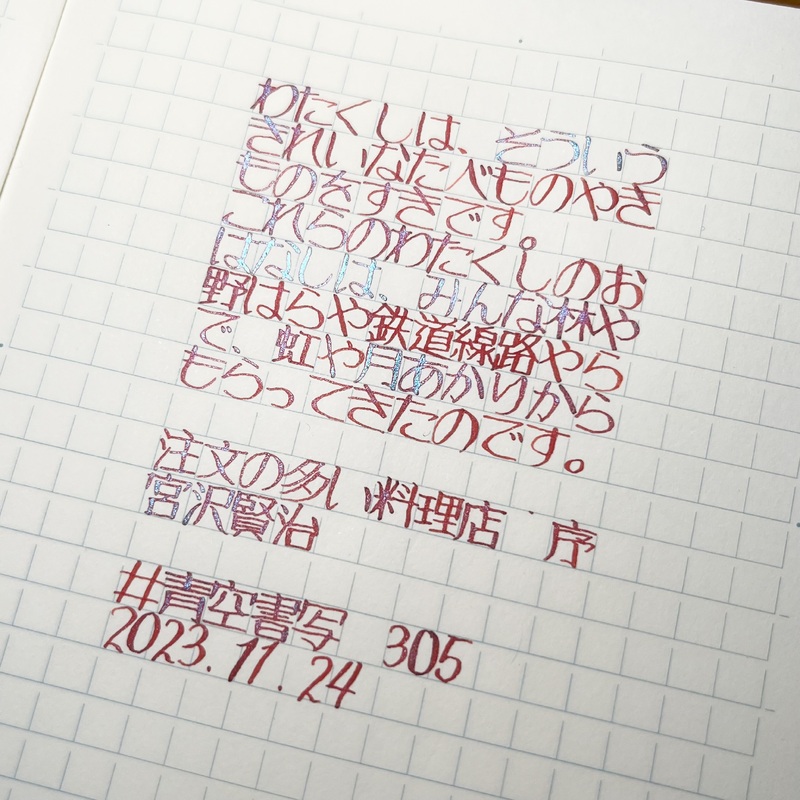 わたくしは、そういう
きれいなたべものやき
ものをすきです。
これらのわたくしのお
はなしは、みんな林や
野はらや鉄道線路やら
で、虹や月あかりから
もらってきたのです。
注文の多い料理店 序
宮沢賢治
#青空書写 305
2023.11.24